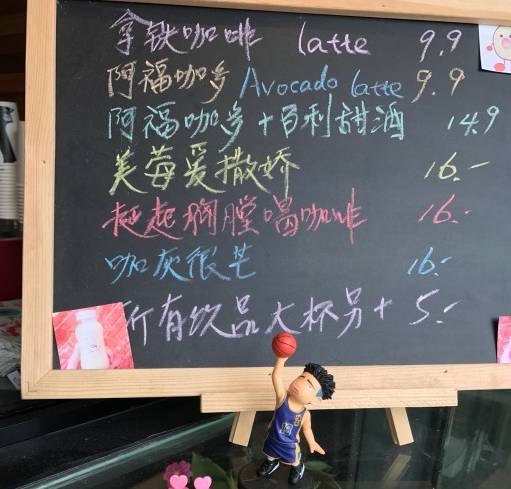 拿铁咖啡 latte 9.9
阿福咖多 Avocado latte 9.9
阿福咖多+百利甜酒 14.9
美莓爱撒娇 16.-
赳赳胸膛喝咖啡 16.-
咖灰很芒 16.-
所有饮品大杯另+5.-